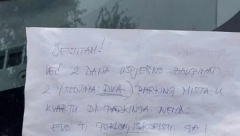 VEĆ 2 DANA USPJEŠNO ZAUZIMAŠ
2 (SLOVIMA DVA) PARKING MJESTA U
KVARTU DI PARKINGA NEMA.
EVO TI POKLON